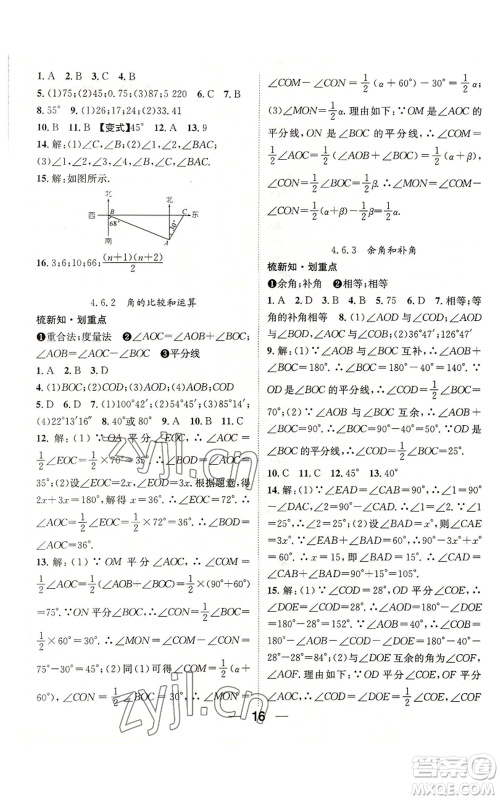 1. A　2. B　3. C　4. B
5. (1)75;(2)45;0.75;(3)87;5 220　6. A　7. B
8. 55°　9. (1)26;17;24;(2)33.41
10. B　11. B【变式】45°　12. A　13. 9
14. 解:(1)∠C,∠B,∠BAC.(2)∠2,∠B,∠BAC;
(3)∠1,∠2,∠B,∠C,∠BAC.
15. 解:如图所示.
北
北
西
B
C
东
68°
30°
南
A
16. 3;6;10;66; (n+1)(n+2)/2
4.6.2　角的比较和运算
梳新知·划重点
❶重合法;度量法　❷∠AOC;∠BOC;
∠AOB=∠AOC　❸平分线
1. A　2. B　3. D
4. (1)BOD;COD;(2)AOC;(3)AOD;BOD
5. D　6. D　7. (1)100°42′;(2)54°45′;(3)85°9′;
(4)22°13′16″　8. 40°或80°　9. C　10. B　11. C
12. 解:(1)∵OA 平分∠EOC,∴∠AOC=
1/2∠EOC=1/2×70°=35°.∴∠BOD=∠AOC=
35°.(2)设∠EOC=2x,∠EOD=3x.根据题意得
2x+3x=180°,解得x=36°.∴∠EOC=2x=72°.
∴∠AOC=1/2∠EOC=1/2×72°=36°.∴∠BOD=
∠AOC=36°.
13. 解:(1)∵OM 平分∠AOC,∴∠COM=
1/2∠AOC=1/2(∠AOB+∠BOC)=1/2×(90°+60°)
=75°.(2)∵ON 平分∠BOC,∴∠CON=1/2∠BOC=
1/2×60°=30°.∴∠MON=∠COM-∠CON=
75°-30°=45°.(3)∵∠COM=1/2∠AOC=1/2(α+
60°),∠CON=1/2∠BOC=30°,∴∠MON=
∠COM-∠CON=1/2(α+60°)-30°=1/2α.
(3)∠MON=1/2α.理由如下:∵OM是∠AOC的
平分线,∴∠COM=1/2∠AOC=1/2(α+β).∵ON
平分∠BOC,∴∠CON=1/2∠BOC=1/2β.∴∠MON
=∠COM-∠CON=1/2(α+β)-1/2β=1/2α.
4.6.3　余角和补角
梳新知·划重点
❶余角;补角　❷相等;相等
1. A　2. D　3. B　4. B　5. C　6. D　7. 相等;等
角的补角相等　8. (1)∠AOC,∠BOC;∠AOD
与∠BOD,∠AOC与∠BOC;(2)36°47′;126°47′
9. 解:(1)∵∠AOB与∠BOC互补,∴∠AOB+
∠BOC=180°.又∵∠AOB=40°,∴∠BOC=
180°-40°=140°.∵OD是∠BOC的平分线,∴∠COD
=1/2∠BOC=70°.(2)∵∠AOB与∠BOC互余,
∴∠AOB+∠BOC=90°.又∵∠AOB=40°,∴∠BOC
=90°-40°=50°.∵OD是∠BOC的平分线,∴∠COD
=1/2∠BOC=25°.
10. C　11. C　12. 45°　13. 40°
14. 解:(1)∵∠EAD=∠CAB=90°,∴∠1=90°
-∠DAC,∠2=90°-∠DAC.∴∠1=∠2.(2)∵∠CAE
=∠EAB+∠CAB=∠EAB+90°=3∠EAB
+60°,∴∠EAB=15°.∴∠CAE=90°+15°=105°.
15. 解:(1)∵∠COE=90°,∠DOE=28°,∴∠COD
=∠COE-∠DOE=90°-28°=62°.∵∠DOF=
90°,∴∠COF=∠COD+∠DOF=62°+90°=
152°.(2)∵∠COE+∠DOF+∠DOE=∠COD=
180°,∴∠COD=∠COE-∠DOE=180°-90°
-28°-28°=84°.(3)∠DOE与∠COF互补.理
由如下:∵∠COD=∠COE-∠DOE,∠COF=
∠COD+∠DOF,∴∠COF=∠COE-∠DOE+
16
zyjl.cn
zyjl.cn
答案圈
MXQE.COM